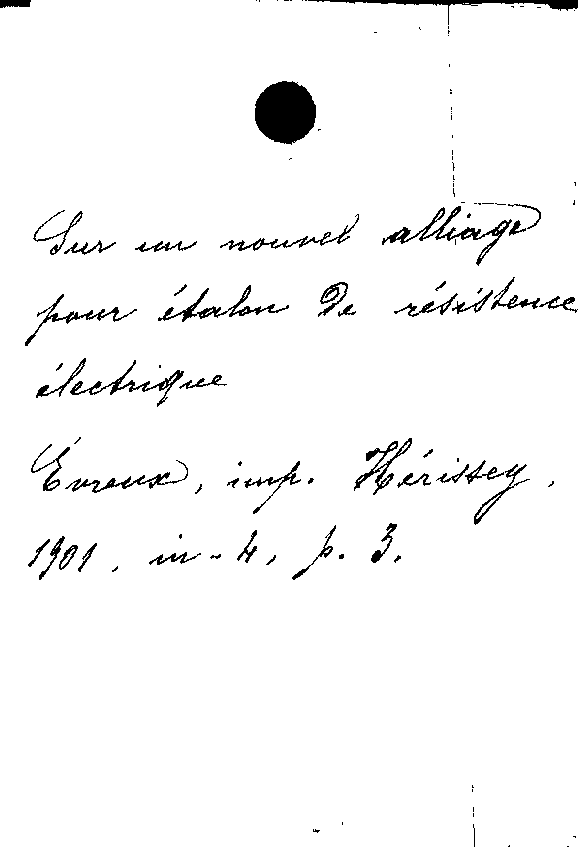 Sur un nouvel alliage
pour étalon de résistence
électrique
Évreux, imp. Hérissey,
1901, in-4, p. 3.